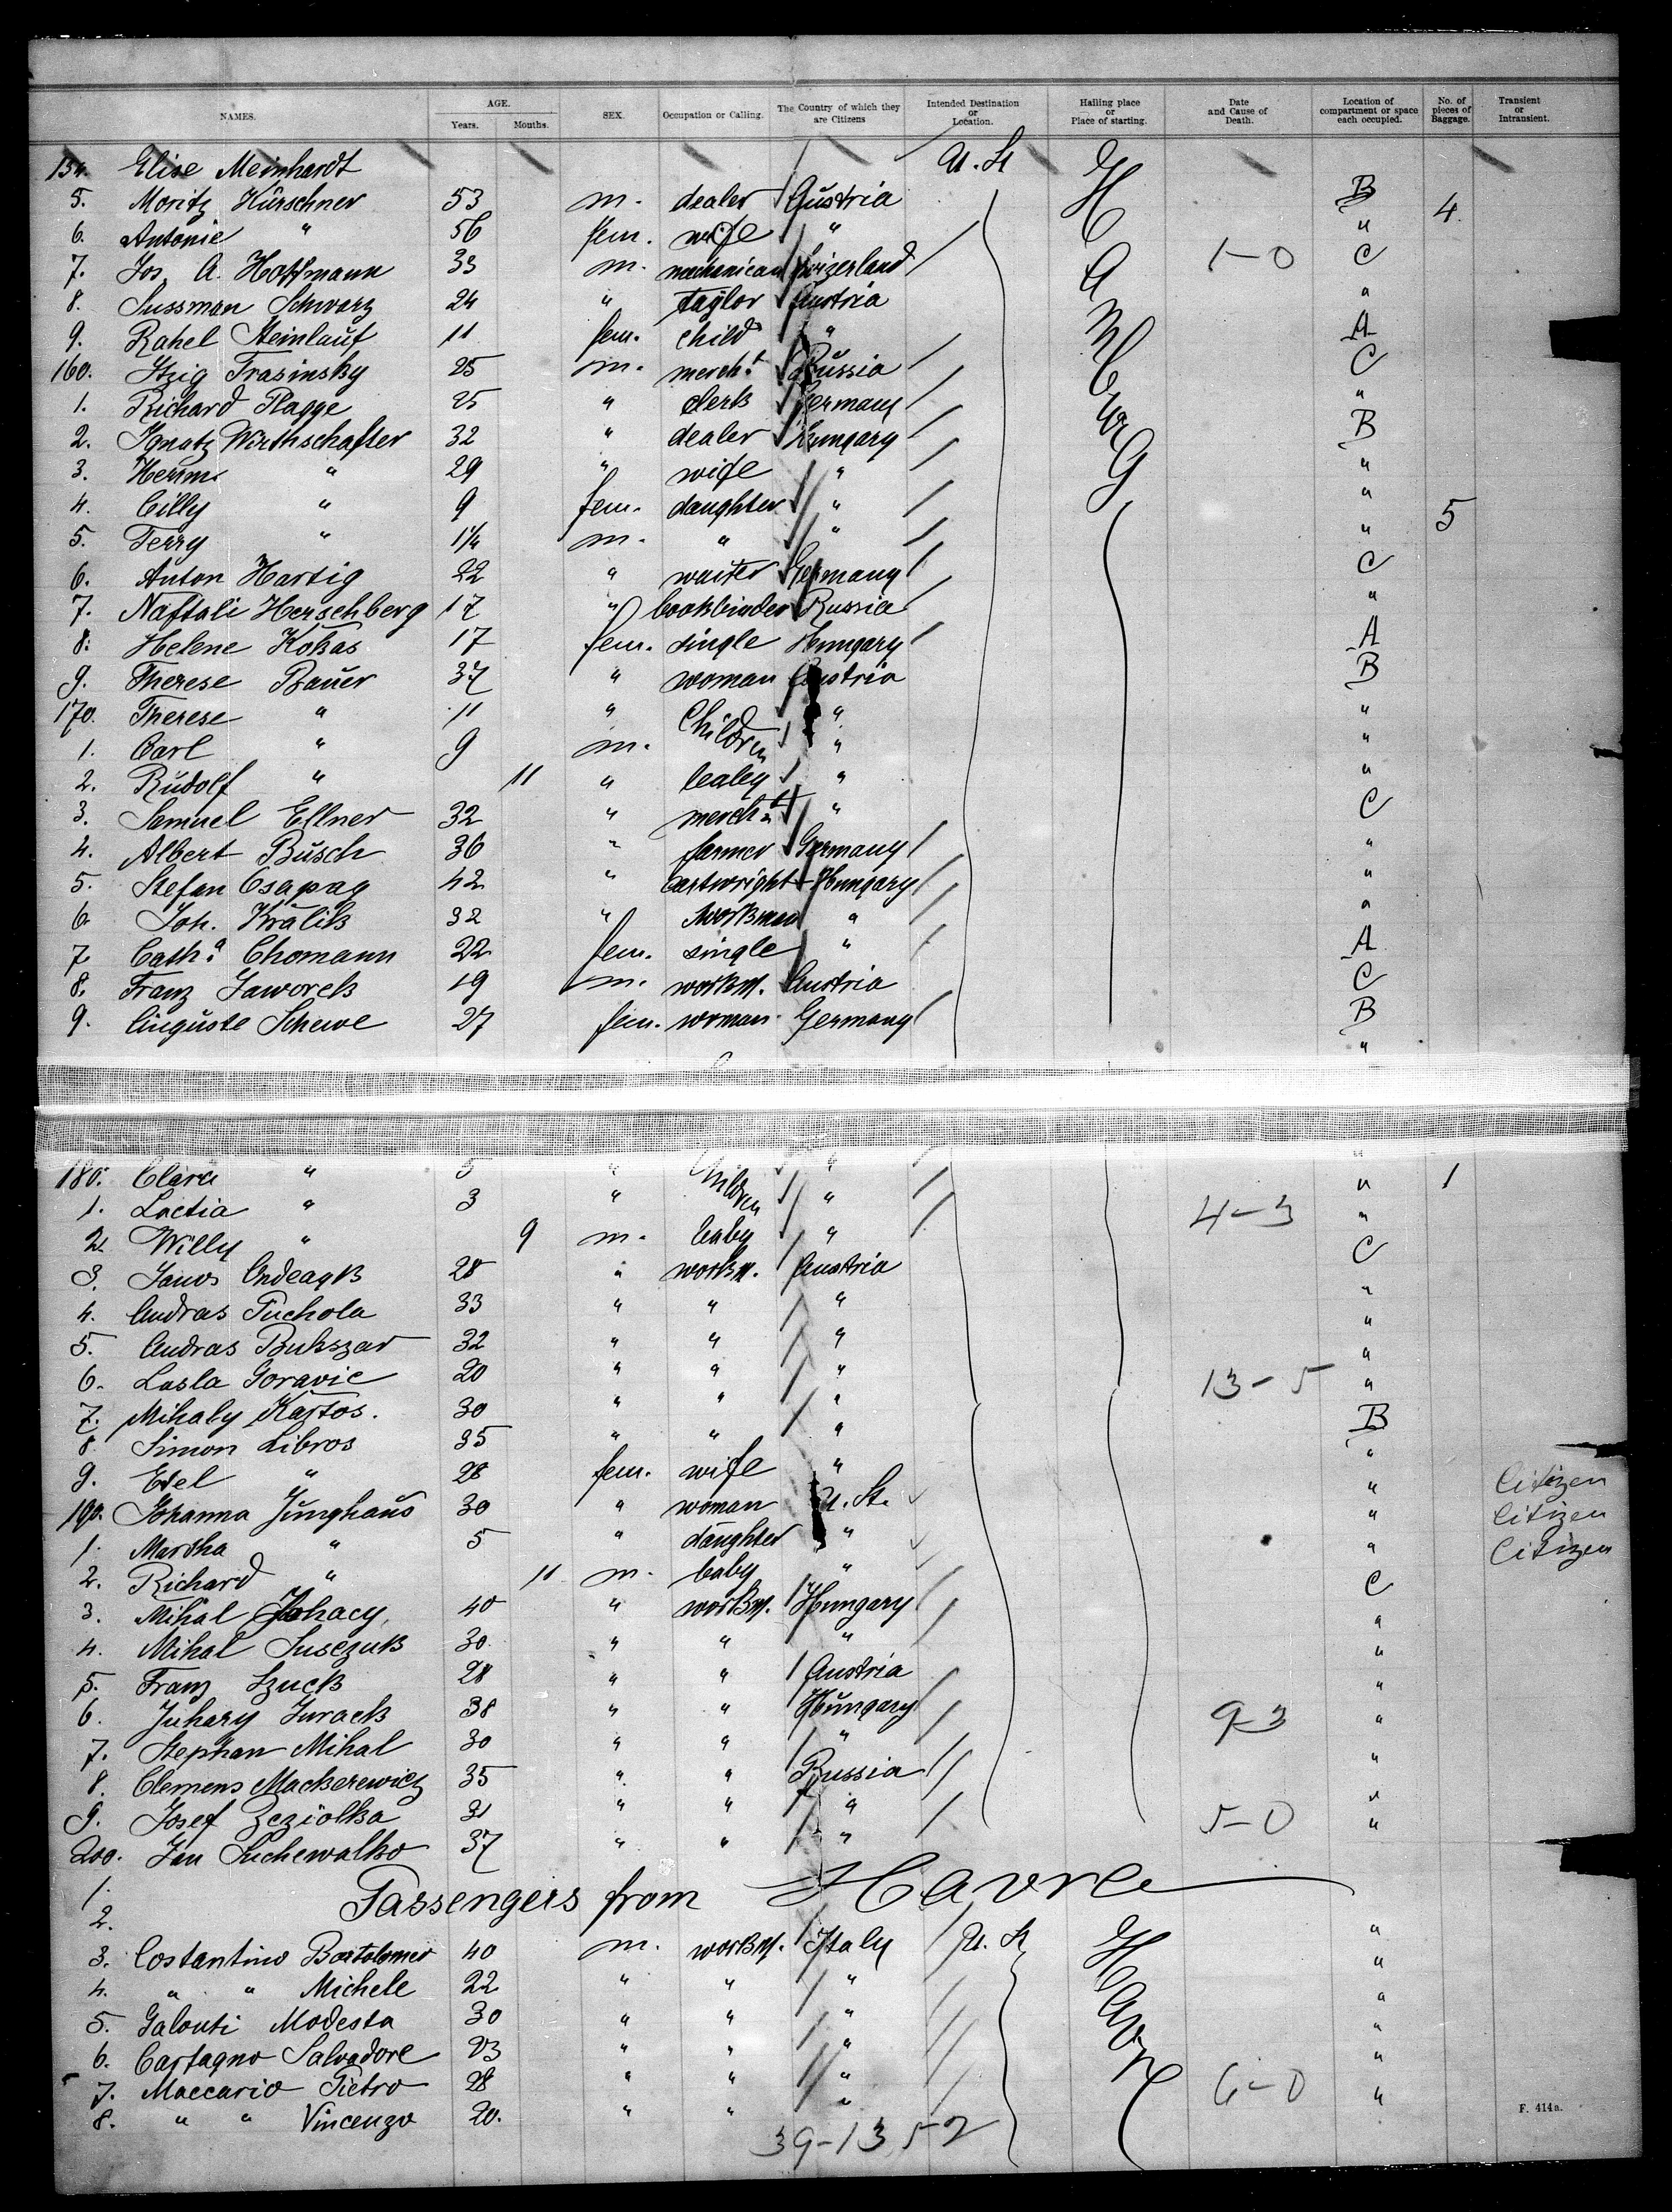 NAMES. AGE. Years. Months. SEX. Occupation or Calling. The Country of which they are Citizens Intended Destination or Location. Hailing place or Place of starting. Date and Cause of Death. Location of compartment or space each occupied. No. of pieces of Baggage. Transient or Intransient.
154. Elise Meinhardt U. St
5. Moritz Kürschner 53 m. dealer Austria Hamburg B 4
6. Antonie " 56 fem. wife " "
7. Jos. A. Hoffmann 33 m. mechanican Swizerland 1-0 C
8. Sussman Schwarz 24 " taylor Austria "
9. Rahel Steinlauf 11 fem. child " A
160. Itzig Trasinsky 25 m. merch.t Russia C
1. Richard Plagge 25 " clerk Germany "
2. Ignatz Wirthschafter 32 " dealer Hungary B
3. Herm. " 29 " wife " "
4. Cilly " 9 fem. daughter " "
5. Ferry " 1¼ m. " " " 5
6. Anton Hartig 22 " waiter Germany C
7. Naftali Herschberg 17 " bookbinder Russia "
8. Helene Kokas 17 fem. single Hungary A
9. Therese Bauer 37 " woman Austria B
170. Therese " 11 " Children " "
1. Carl " 9 m. " "
2. Rudolf " 11 " baby " "
3. Samuel Ellner 32 " merch.t " C
4. Albert Busch 36 " farmer Germany "
5. Stefan Csapay 42 " cartwright Hungary "
6. Joh. Kralik 32 " workman " "
7. Cath.a Chomann 22 fem. single " A
8. Franz Jaworek 19 m. workm. Austria C
9. Auguste Schewe 27 fem. woman Germany B
"
180. Clara " 5 " Children " " 1
1. Lactia " 3 " " "
2. Willy " 9 m. baby " 4-3 "
3. Janos 28 " workm. Austria C
4. Andras Puchola 33 " " " "
5. Andras Bukszar 32 " " " "
6. Lasla Goravic 20 " " " "
7. Mihaly Kartos. 30 " " " 13-5 "
8. Simon Libros 35 " " " B
9. Etel " 28 fem. wife " "
190. Johanna Junghaus 30 " woman U. St. " Citizen
1. Martha " 5 " daughter " " Citizen
2. Richard " 11 m. baby " " Citizen
3. Mihal 40 " workm. Hungary C
4. Mihal Susczuk 30 " " " "
5. Franz Szuck 28 " " Austria "
6. Juhary Jurack 38 " " Hungary "
7. Stephan Mihal 30 " " " 9-3 "
8. Clemens Mackerewicz 35 " " Russia "
9. Josef Zeziolka 31 " " " "
200. Jan Suchewalko 37 " " " 5-0 "
1.
Passengers from Havre
2.
3. Costantino Bartolomeo 40 m. workm. Italy U. St Havre "
4. " " Michele 22 " " " "
5. Galouti Modesta 30 " " " "
6. Cartagno Salvadore 23 " " " "
7. Maccario Pietro 28 " " " "
8. " " Vincenzo 20. " " " 6-0 "
39-13 52
F. 414a.